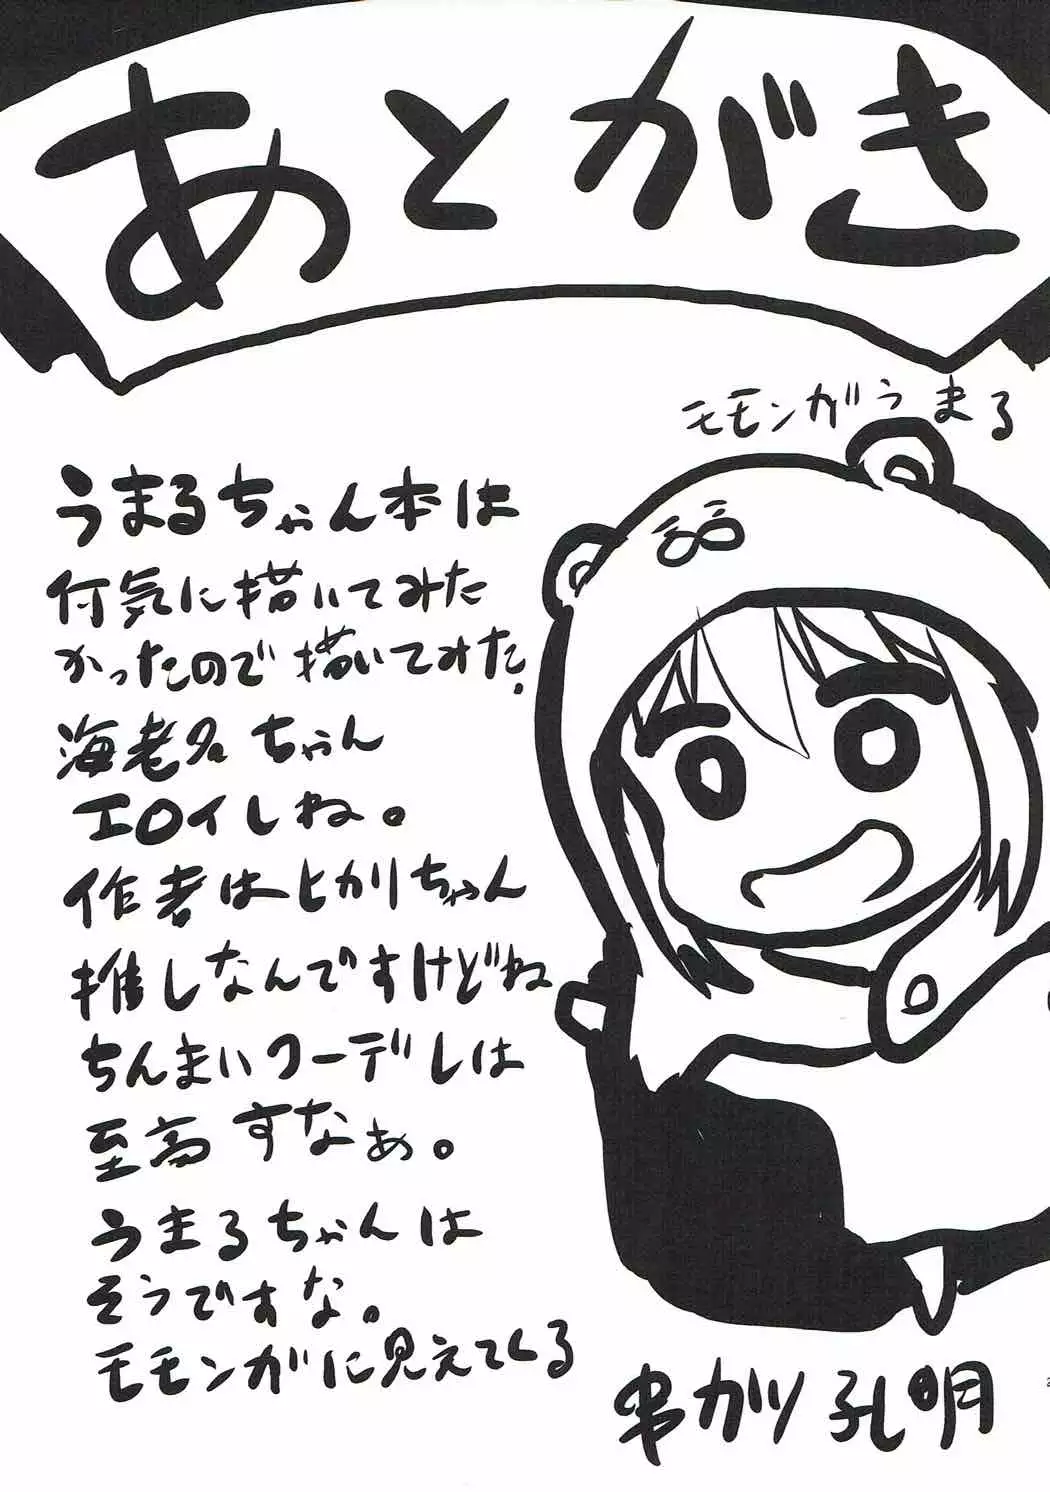 あとがき
モモンガうまる
うまるちゃん本は
何気に描いてみた
かったので描いてみた。
海老名ちゃん
エロイしね。
作者はヒカリちゃん
推しなんですけどね
ちんまいクーデレは
至高すなぁ。
うまるちゃんは
そうですな。
モモンガに見えてくる
串カツ孔明